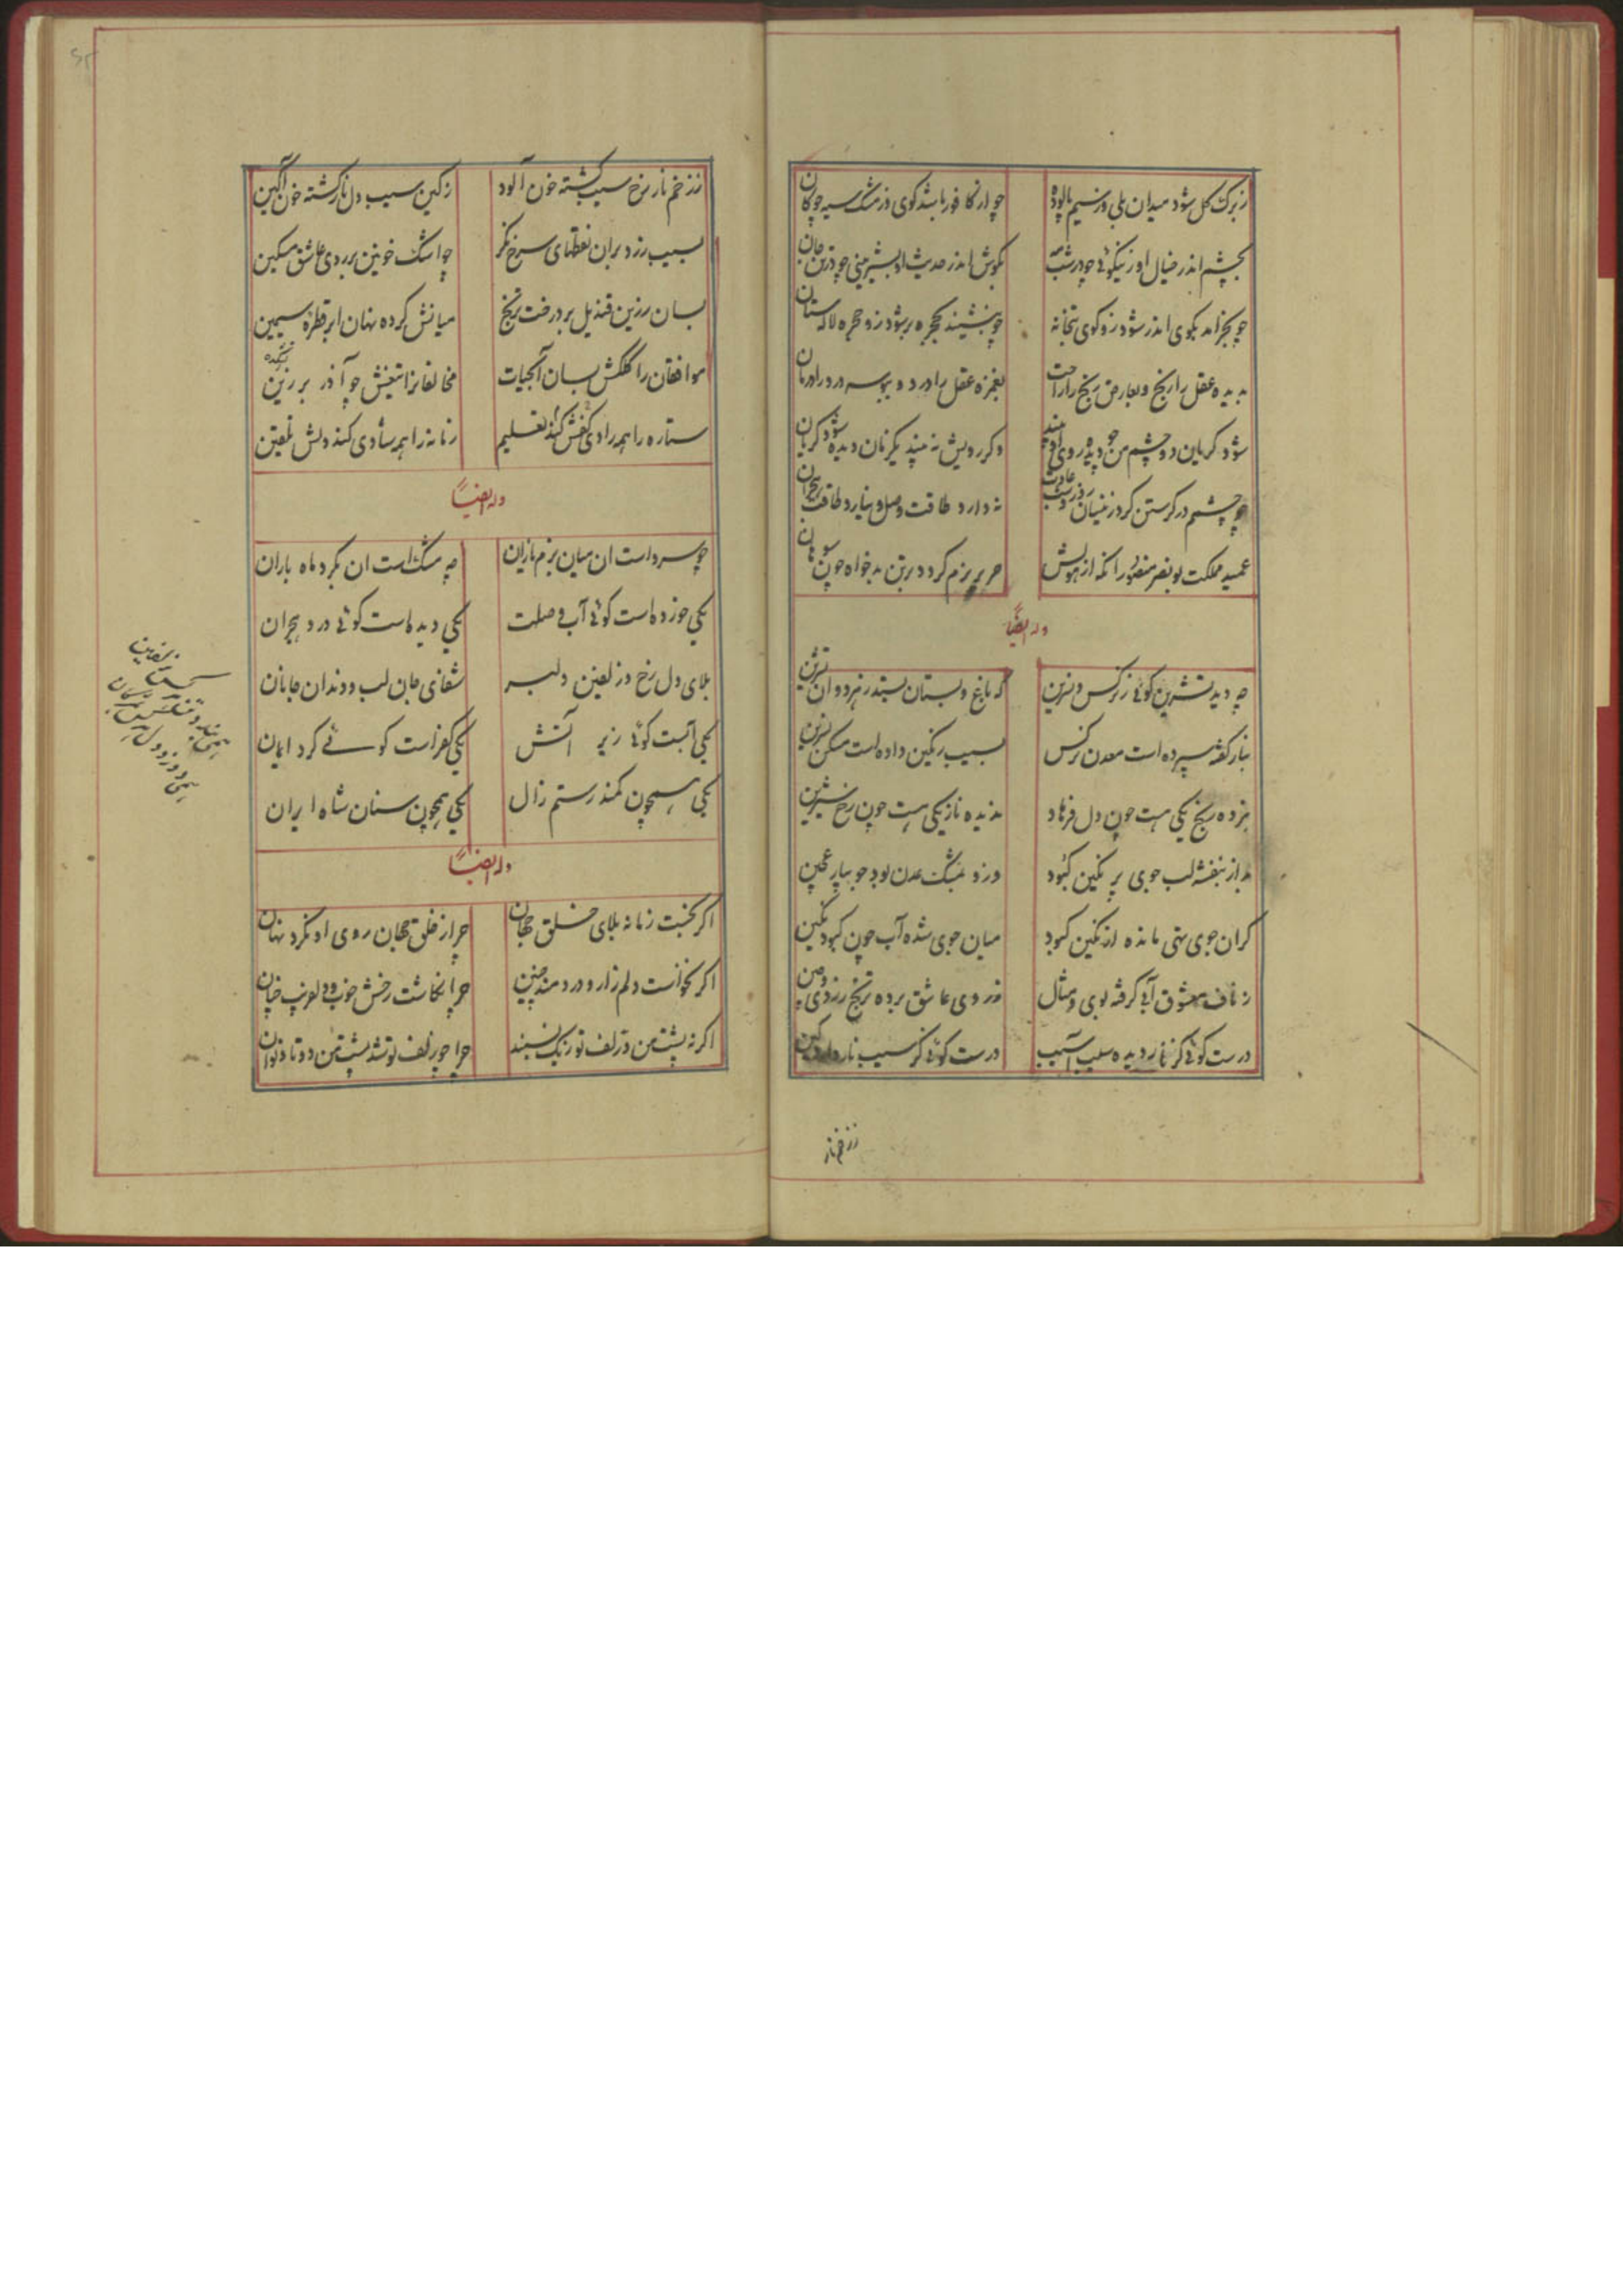 ز برک کل شود میدان بلی وز سیم پالوده
چو از کافور باشد کوی وز مشک سیه چوکان
بچشم اندر خیال او ز نیکوئی چو در شب مه
بکوش اندر حدیث او بشیرینی چو در تن جان
چو بخرامد بکوی اندر شود زو کوی بتخانه
چو بنشیند بحجره بر شود زو حجره لالستان
بدیده عقل را رنج و بعارض رنج را راحت
بغمزه عقل را درد و ببوسه درد را درمان
شود کریان دو چشم من چو دیده روی او بیند
وکر رویش نه بیند یکزمان دیده شود کریان
دو چشمم در کرستن کرد زینسان روز و شب عادت
نه دارد طاقت وصل و نیارد طاقت هجران
عمید مملکت بو نصر منصور انکه از هولش
حریر بزم کردد بر تن بدخواه چون سوهان
وله ایضاً
چه دید تشرین کوئی ز نرکس و نسرین
که باغ و بستان بستد ز هر دوان تشرین
بنار کفته سپرده است معدن نرکس
بسیب رنکین داده است مسکن نسرین
بزده رنج یکی هست چون دل فرهاد
ندیده ناز یکی هست چون رخ شیرین
بد از بنفشه لب جوی پر نکین کبود
کران جوی تهی مانده از نکین کبود
میان جوی شده آب چون کبود نکین
ز ناف معشوق آبی کرفته بوی و مثال
ز روی عاشق برده ترنج زردی و چین
درست کوئی کز نار دیده سیب آسیب
درست کوئی کز سیب نار دارد کین
ز زخم نار
ز زخم نار رخ سیب کشته خون آلود
ز کین سیب دل نار کشته خون آکین
بسیب زرد بران نقطهای سرخ نکر
چو اشک خونین بر روی عاشق مسکین
بسان زرین قندیل بر درخت ترنج
میانش کرده نهان ابر قطره سیمین
موافقان را کلکش بسان آبحیات
مخالفانرا تیغش چو آذر برزین
ستاره را همه رادی کفش کند تعلیم
زمانه را همه شادی کند دلش تلقین
وله ایضاً
چو سرو است ان میان بزم نازان
چه مشک است ان بکرد ماه باران
یکی خورده است کوئی آب وصلت
یکی دیده است کوئی درد هجران
بلای دل رخ و زلفین دلبر
شفای جان لب و دندان جانان
یکی آبست کوئی زیر آتش
یکی کفر است کوئی کرد ایمان
یکی همچون کمند رستم زال
یکی همچون سنان شاه ایران
وله ایضاً
اکر نجست زمانه بلای خلق جهان
چرا ز خلق جهان روی او نکرد نهان
اکر نخواست دلم زار و دردمند چنین
چرا نکاشت رخش خوب و دلفریب چنان
اکر نه پشت من و زلف تو ز یک نسبند
چرا چو زلف تو شد پشت من دوتا و نوان